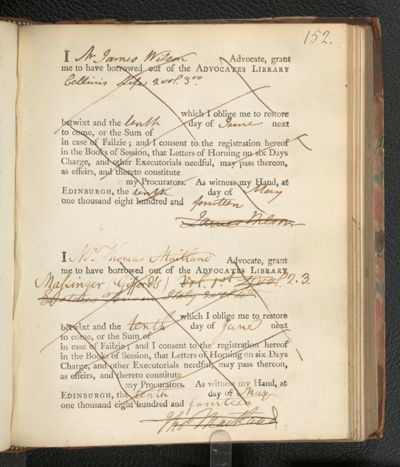 152.
I Mr James Wilson Advocate, grant
me to have borrowed out of the ADVOCATES LIBRARY
Cellinis Life 2 vol. 8vo
which I oblige me to restore
betwixt and the tenth day of June next
to come, or the Sum of
in case of Failzie; and I consent to the registration hereof
in the Books of Session, that Letters of Horning on six Days
Charge, and other Executorials needful, may pass thereon,
as effeirs, and thereto constitute
my Procurators. As witness my Hand, at
EDINBURGH, the tenth day of May
one thousand eight hundred and fourteen
James Wilson
I Mr. Thomas Maitland Advocate, grant
me to have borrowed out of the ADVOCATES LIBRARY
Massinger (Gifford's) Vol. 1st 2. 3.
which I oblige me to restore
betwixt and the tenth day of June next
to come, or the Sum of
in case of Failzie; and I consent to the registration hereof
in the Books of Session, that Letters of Horning on six Days
Charge, and other Executorials needful, may pass thereon,
as effeirs, and thereto constitute
my Procurators. As witness my Hand, at
EDINBURGH, the tenth day of May
one thousand eight hundred and fourteen
Tho Maitland